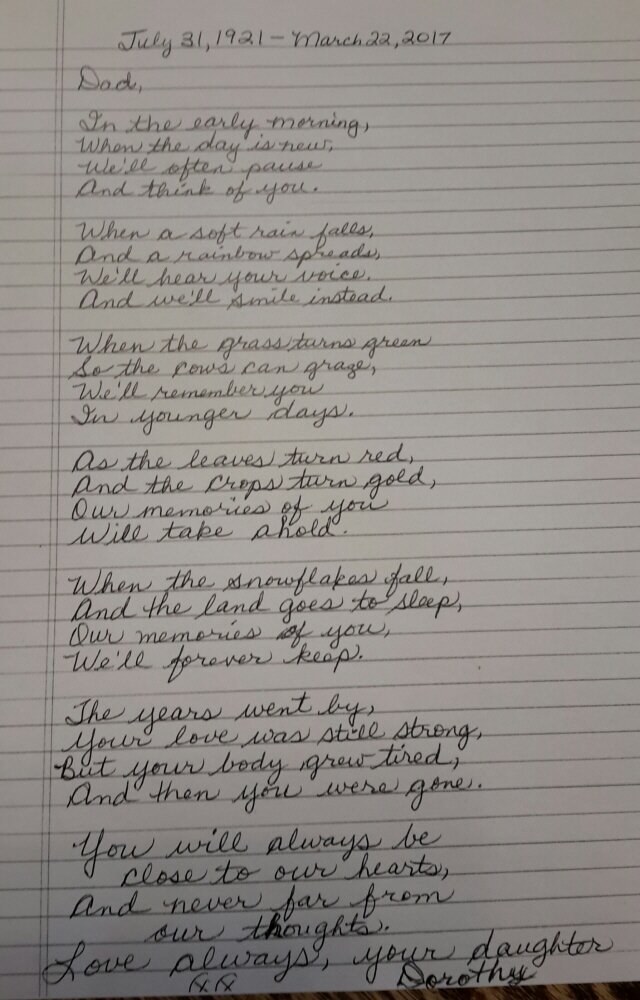 July 31, 1921 - March 22, 2017
Dad,
In the early morning,
When the day is new,
We'll often pause
And think of you.
When a soft rain falls,
And a rainbow spreads,
We'll hear your voice,
And we'll smile instead.
When the grass turns green
So the cows can graze,
We'll remember you
In younger days.
As the leaves turn red,
And the crops turn gold,
Our memories of you
Will take ahold.
When the snowflakes fall,
And the land goes to sleep,
Our memories of you,
We'll forever keep.
The years went by,
Your love was still strong,
But your body grew tired,
And then you were gone.
You will always be
close to our hearts,
And never far from
our thoughts.
Love always, your daughter
xx Dorothy